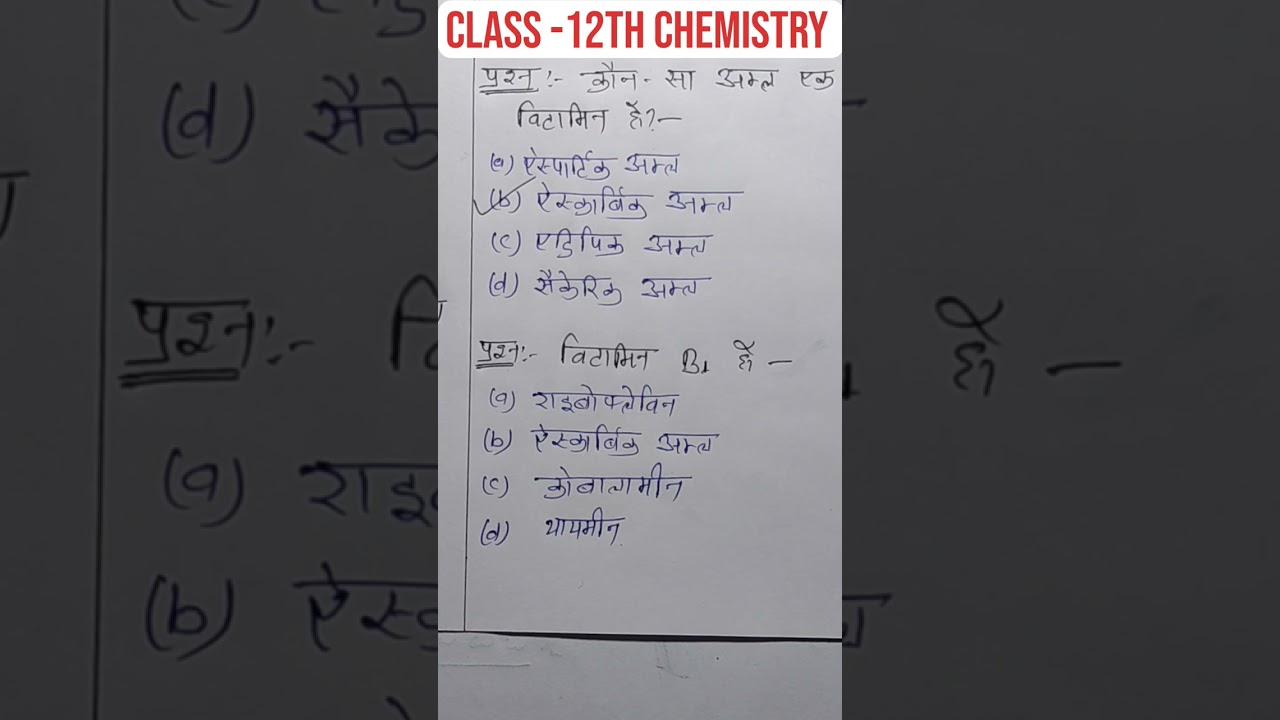 CLASS -12TH CHEMISTRY
प्रश्न:- कौन-सा अम्ल एक
विटामिन है?-
(a) ऐस्पार्टिक अम्ल
(b) ऐस्कार्बिक अम्ल
(c) एडिपिक अम्ल
(d) सैकेरिक अम्ल
प्रश्न:- विटामिन B₁ है -
(a) राइबोफ्लेविन
(b) ऐस्कार्बिक अम्ल
(c) कोबालामीन
(d) थायमीन